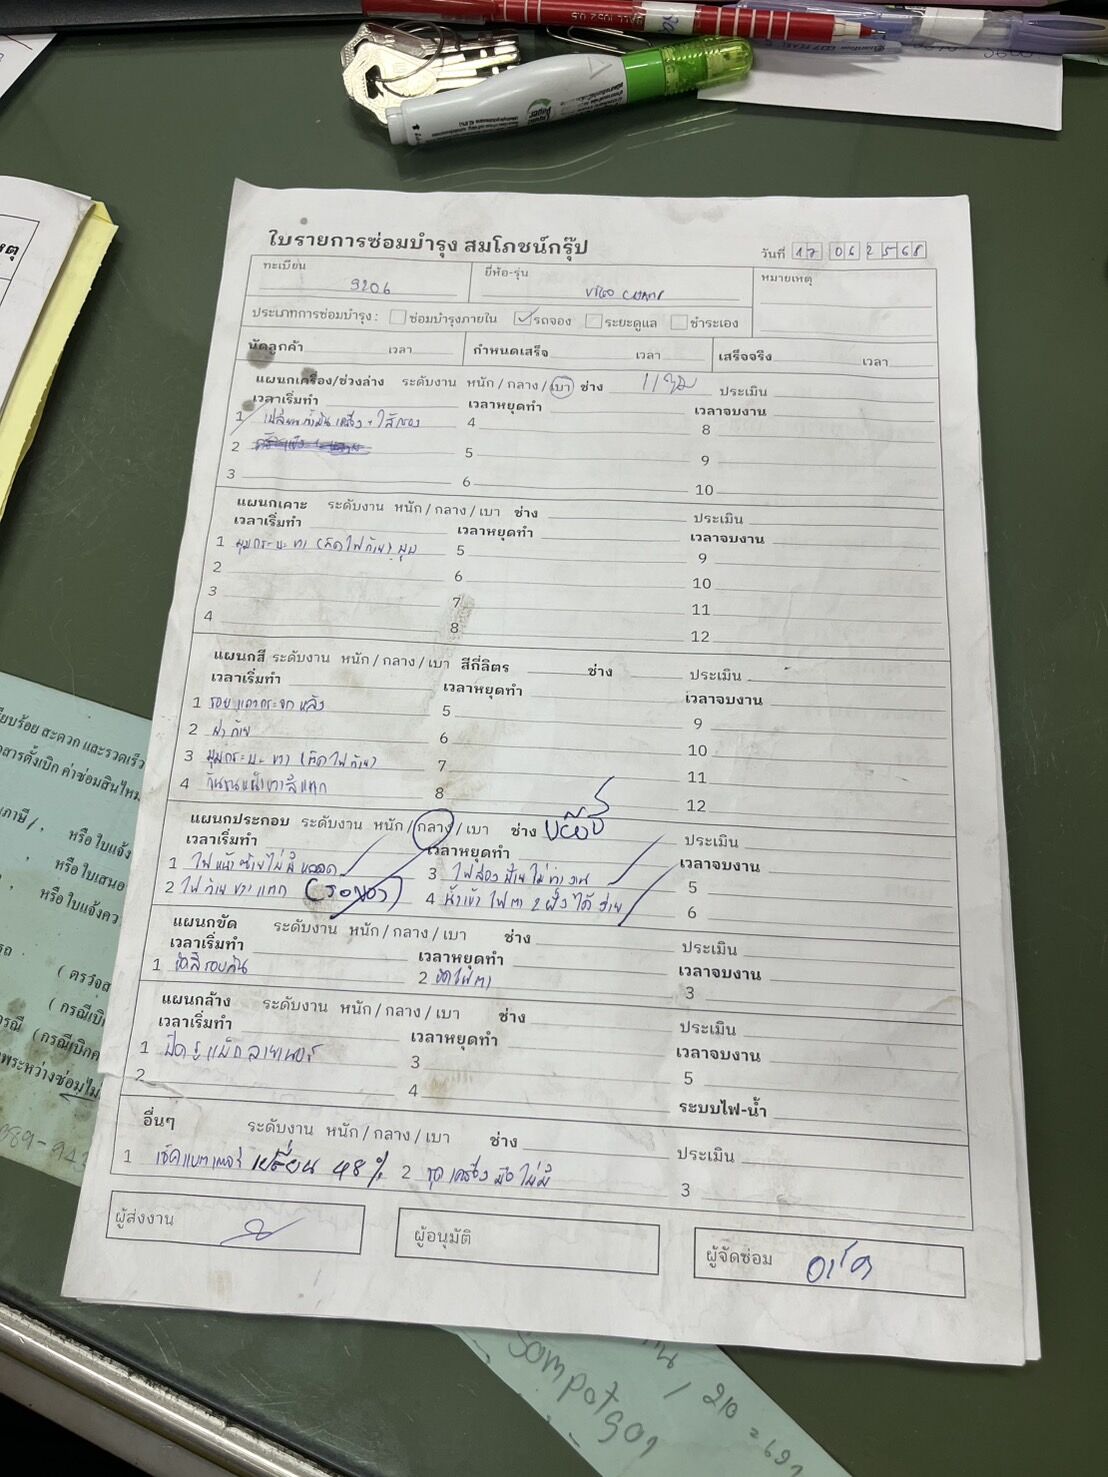 ใบรายการซ่อมบำรุง สมโภชน์กรุ๊ป
วันที่ 17 06 2568
ทะเบียน 9206
ยี่ห้อ-รุ่น VIGO CHAMP
หมายเหตุ
ประเภทการซ่อมบำรุง : ซ่อมบำรุงภายใน รถจอง ระยะดูแล ชำระเอง
นัดลูกค้า เวลา กำหนดเสร็จ เวลา เสร็จจริง เวลา
แผนกเครื่อง/ช่วงล่าง ระดับงาน หนัก / กลาง / เบา ช่าง ประเมิน
เวลาเริ่มทำ เวลาหยุดทำ เวลาจบงาน
1 เปลี่ยนน้ำมันเครื่อง + ไส้กรอง 4 8
2 5 9
3 6 10
แผนกเคาะ ระดับงาน หนัก / กลาง / เบา ช่าง ประเมิน
เวลาเริ่มทำ เวลาหยุดทำ เวลาจบงาน
1 มุมกระบะขวา (ติดไฟท้าย) บุบ 5 9
2 6 10
3 7 11
4 8 12
แผนกสี ระดับงาน หนัก / กลาง / เบา สีกี่ลิตร ช่าง ประเมิน
เวลาเริ่มทำ เวลาหยุดทำ เวลาจบงาน
1 รอบ กระจกหลัง 5 9
2 ฝาท้าย 6 10
3 มุมกระบะขวา (ติดไฟท้าย) 7 11
4 กันชนหน้าขวาสีแตก 8 12
แผนกประกอบ ระดับงาน หนัก / กลาง / เบา ช่าง ประเมิน
เวลาเริ่มทำ เวลาหยุดทำ เวลาจบงาน
1 ไฟหน้าซ้ายไม่มีหลอด 3 ไฟส่องป้ายไม่ทำงาน 5
2 ไฟท้ายขวาแตก (รอของ) 4 น้ำเข้าไฟตา 2 ฝั่ง ไล่ฝ้าย 6
แผนกขัด ระดับงาน หนัก / กลาง / เบา ช่าง ประเมิน
เวลาเริ่มทำ เวลาหยุดทำ เวลาจบงาน
1 ขัดสีรอบคัน 2 ขัดไฟตา 3
แผนกล้าง ระดับงาน หนัก / กลาง / เบา ช่าง ประเมิน
เวลาเริ่มทำ เวลาหยุดทำ เวลาจบงาน
1 ปิดรูแม็กลายเนอร์ 3 5
2 4 ระบบไฟ-น้ำ
อื่นๆ ระดับงาน หนัก / กลาง / เบา ช่าง ประเมิน
1 เช็คแบตเตอรี่ เปลี่ยน 48% 2 ชุดเครื่องมือไม่มี 3
ผู้ส่งงาน ผู้อนุมัติ ผู้จัดซ่อม
เรียบร้อย สะดวก และรวดเร็ว
หรือ ใบแจ้ง
หรือ ใบเสนอ
หรือ ใบแจ้งคว
Sompot
/ 210